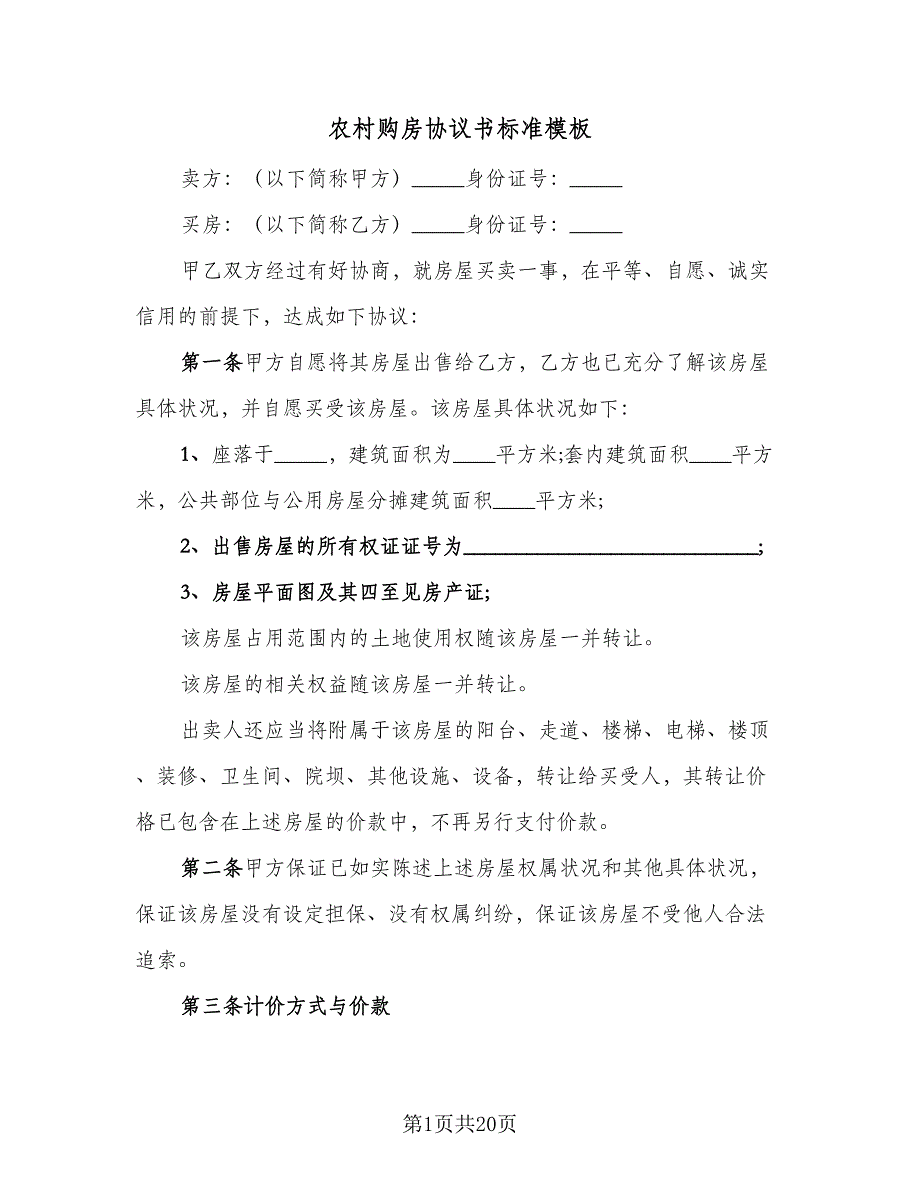 农村购房协议书标准模板
卖方：（以下简称甲方）_____身份证号：_____
买房：（以下简称乙方）_____身份证号：_____
甲乙双方经过有好协商，就房屋买卖一事，在平等、自愿、诚实
信用的前提下，达成如下协议：
第一条甲方自愿将其房屋出售给乙方，乙方也已充分了解该房屋
具体状况，并自愿买受该房屋。该房屋具体状况如下：
1、座落于_____，建筑面积为____平方米;套内建筑面积____平方
米，公共部位与公用房屋分摊建筑面积____平方米;
2、出售房屋的所有权证证号为____________________________;
3、房屋平面图及其四至见房产证;
该房屋占用范围内的土地使用权随该房屋一并转让。
该房屋的相关权益随该房屋一并转让。
出卖人还应当将附属于该房屋的阳台、走道、楼梯、电梯、楼顶
、装修、卫生间、院坝、其他设施、设备，转让给买受人，其转让价
格已包含在上述房屋的价款中，不再另行支付价款。
第二条甲方保证已如实陈述上述房屋权属状况和其他具体状况，
保证该房屋没有设定担保、没有权属纠纷，保证该房屋不受他人合法
追索。
第三条计价方式与价款
第1页共20页